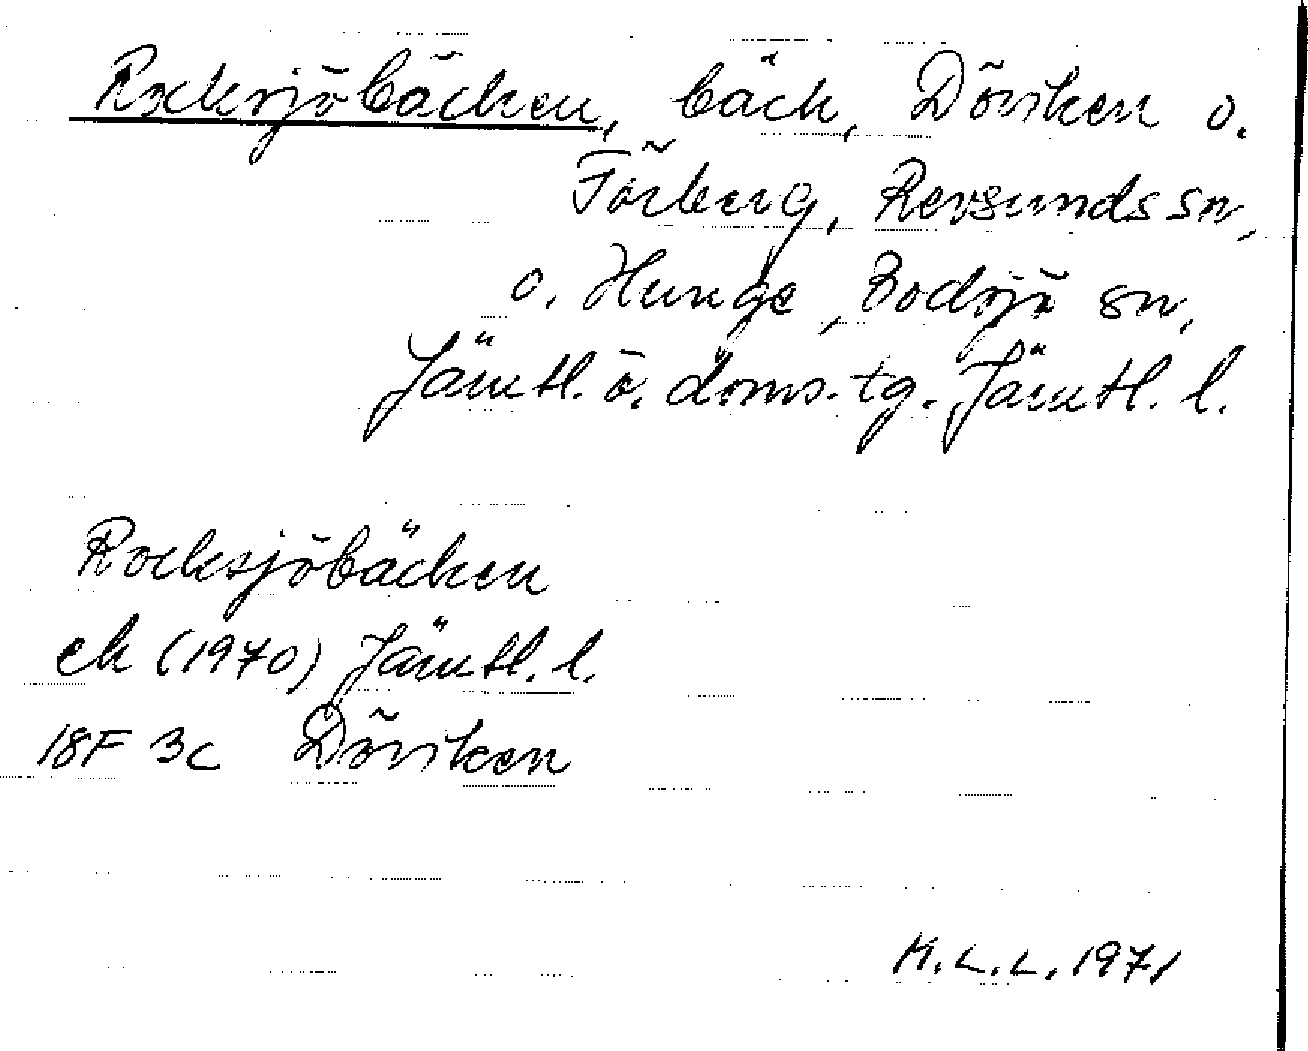 Rocksjöbäcken, bäck, Döviken o.
Törberg, Revsunds sn,
o. Hunge, Bodsjö sn,
Jämtl. ö. doms. tg. Jämtl. l.
Rocksjöbäcken
ek (1970) Jämtl. l.
18F 3c Döviken
M.L.L. 1971